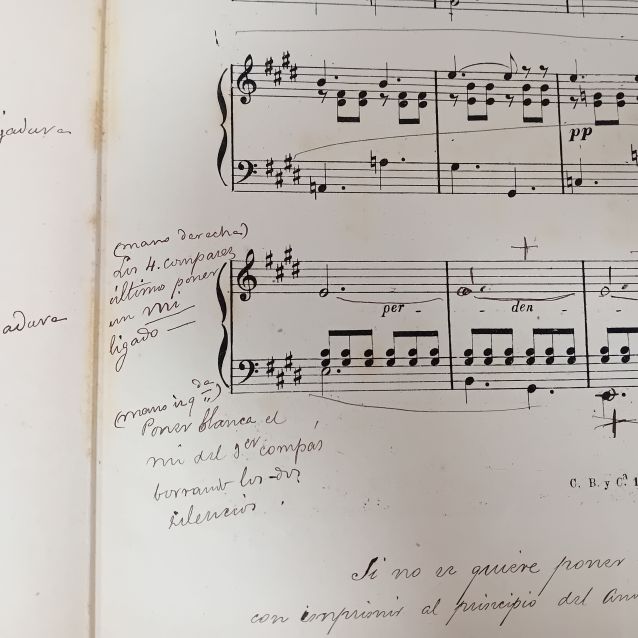 pp
(mano derecha)
Los 4. compases
último poner
un mi
ligado
per - - den
adura
(mano izqda)
Poner blanca el
mi del 3er compás
borrando los dos
silencios.
C. B. y Ca. 1
Si no se quiere poner
con imprimir al principio del